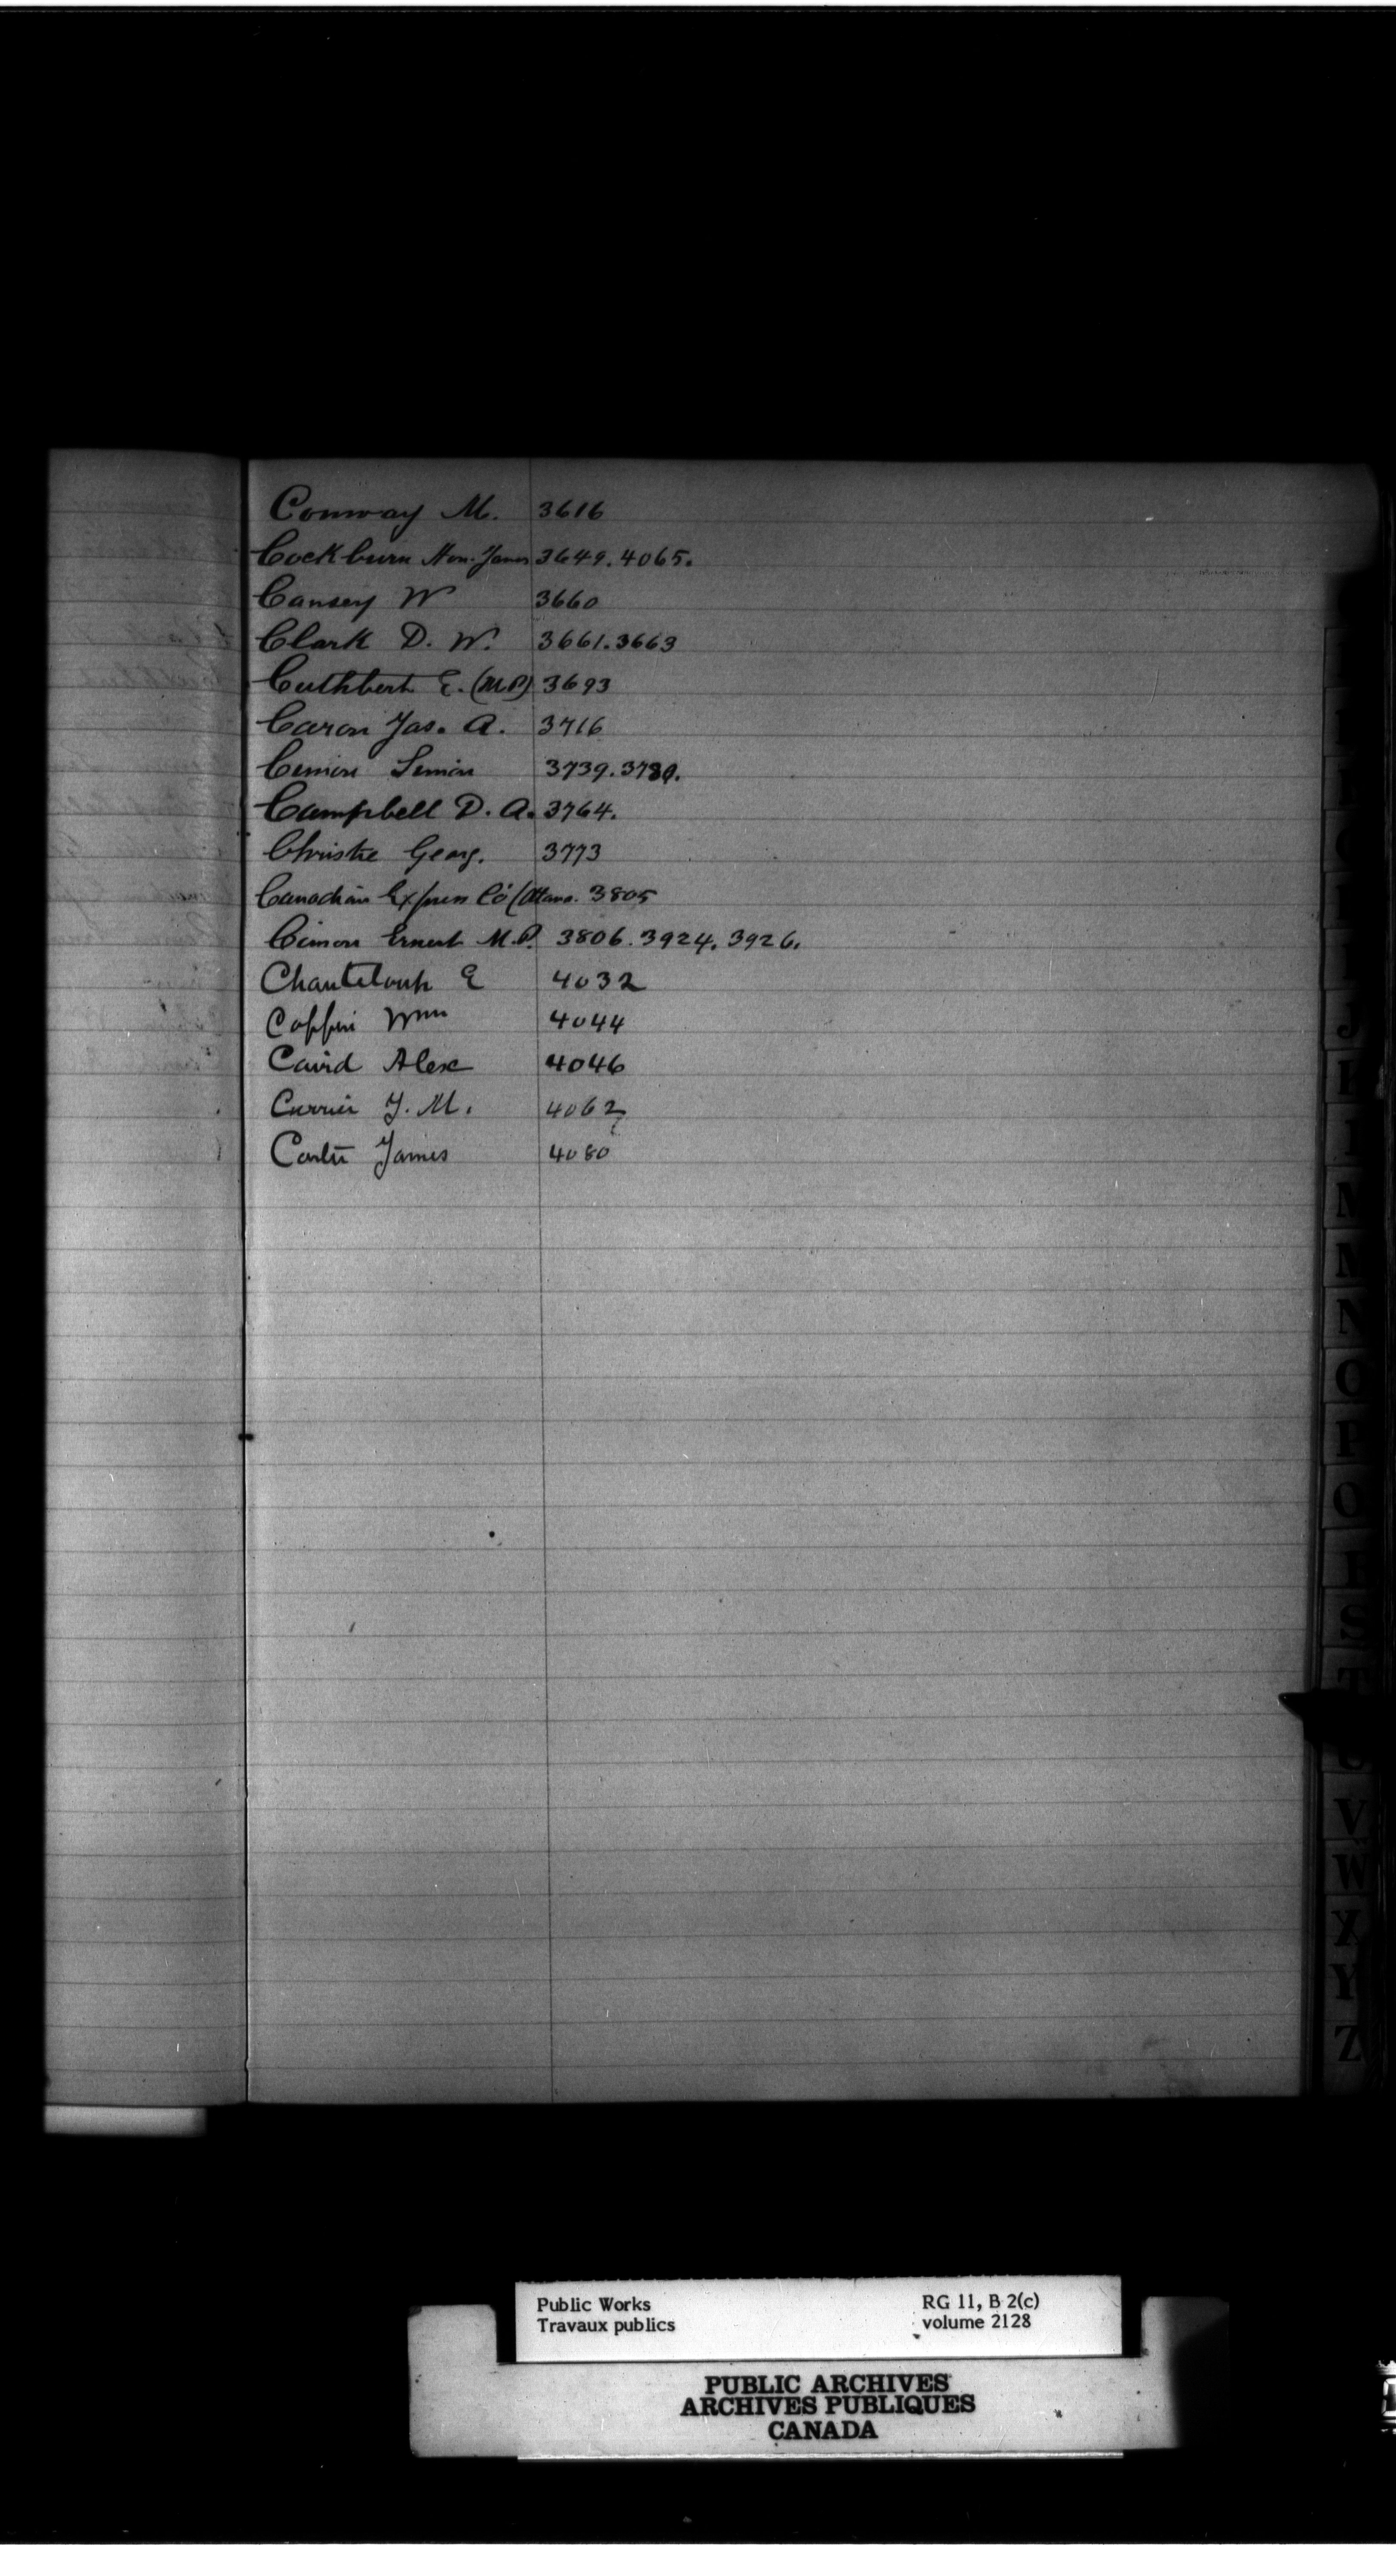 Conway M. 3616
Cockburn Hon. James 3649. 4065.
Cansey W 3660
Clark D. W. 3661. 3663
Cuthbert E. (M P) 3693
Caron Jas. A. 3716
Cimon Simon 3739.
Campbell D. A. 3764.
Christie Georg. 3773
Canadian Express Co (Ottawa. 3805
Cimon Ernest M.P. 3806. 3924. 3926.
Chanteloup E 4032
Coffin Wm 4044
Caird Alex 4046
Currier J. M. 4062
Carter James 4080
J
N
O
P
S
T
V
W
X
Y
Z
Public Works RG 11, B 2(c)
Travaux publics volume 2128
PUBLIC ARCHIVES
ARCHIVES PUBLIQUES
CANADA